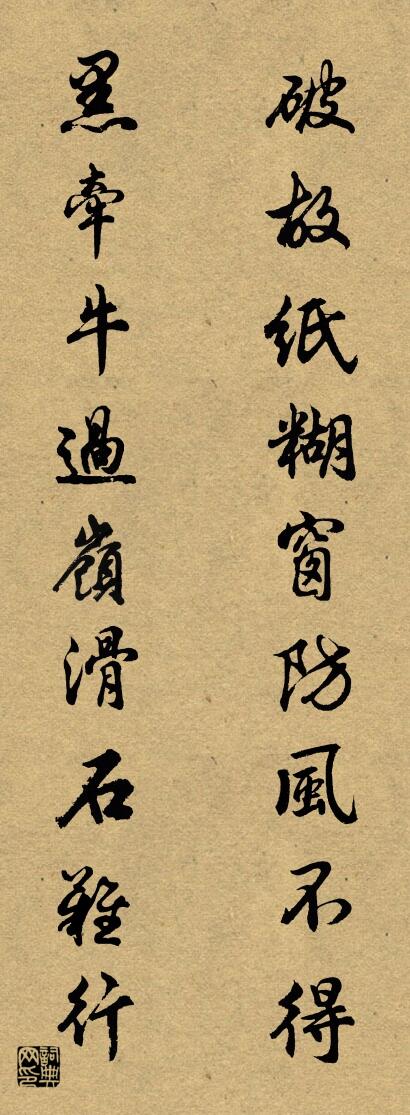 破故纸糊窗防風不得
黑牽牛過嶺滑石難行
詞典網印